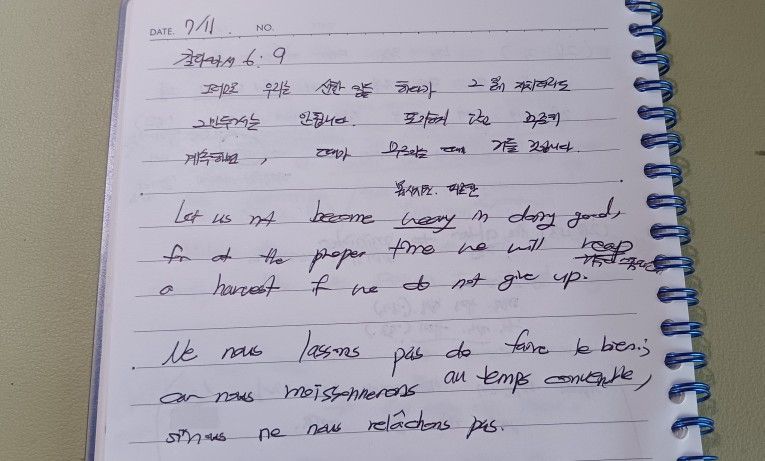 DATE. 7/11. NO.
갈라디아서 6:9
그러므로 우리는 선한 일을 하다가 그 일에 지치더라도
그만두어서는 안됩니다. 포기하지 않고
계속하면, 때가 때에 거둘 것입니다.
몹시 지친. 피곤한
Let us not become weary in doing good,
for at the proper time we will reap
a harvest if we do not give up.
Ne nous lassons pas de faire le bien;
car nous moissonnerons au temps convenable,
si nous ne nous relâchons pas.